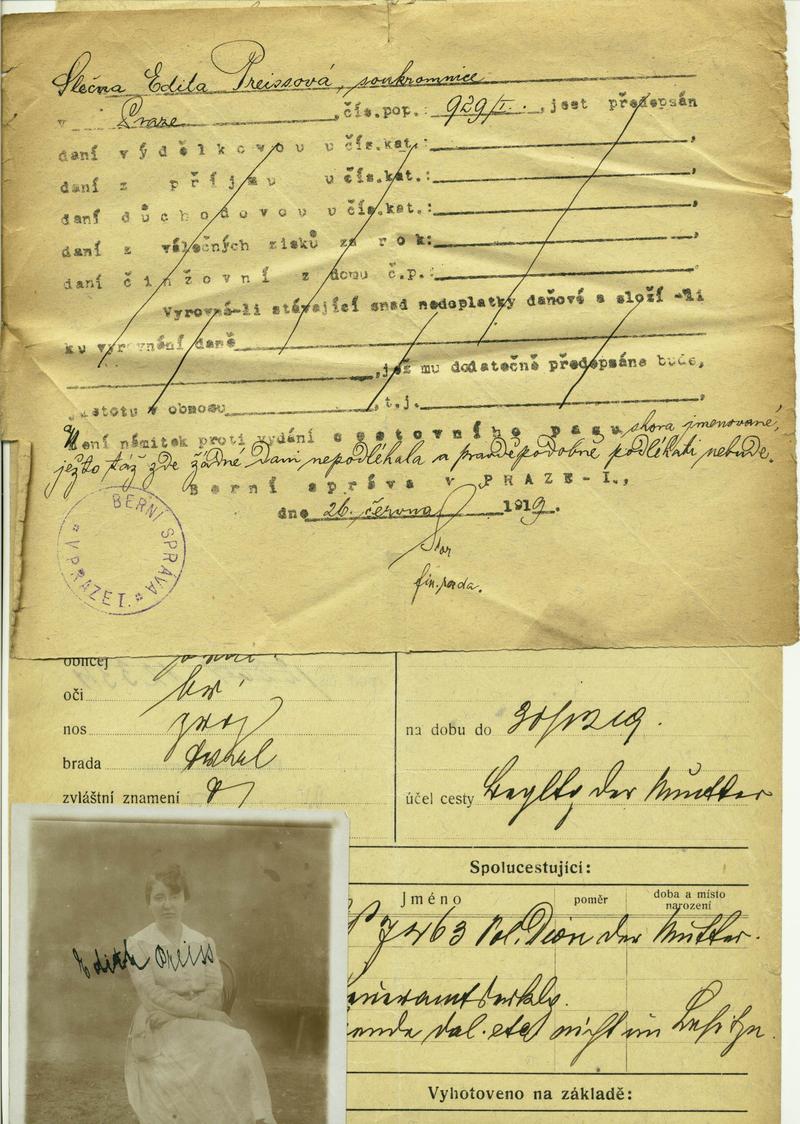 Slečna Edita Preissová, soukromnice
v Praze, čís.pop. 929/I., jest předepsán
daní výdělkovou u čís.kat.:,
daní z příjmu u čís.kat.:,
daní důchodovou u čís.kat.:,
daní z válečných zisků za rok:,
daní činžovní z domu č.p.:,
Vyrovná-li stávající snad nedoplatky daňové a složí-li
ku vyrovnání daně
,jež mu dodatečně předepsána bude,
jistotu v obnosu, t.j.,
Není námitek proti vydání cestovního pasu shora jmenované,
ježto táž zde žádné dani nepodléhala a pravděpodobně podléhati nebude.
Berní správa v PRAZE-I.,
dne 26. června 1919.
fin. rada.
BERNÍ SPRÁVA * V PRAZE I. *
obličej
oči
nos
brada
zvláštní znamení
na dobu do
účel cesty der Mutter
Spolucestující:
Jméno poměr doba a místo narození
7463 Pol. Dion der Mutter.
etc nicht im
Vyhotoveno na základě:
Edith Preiss